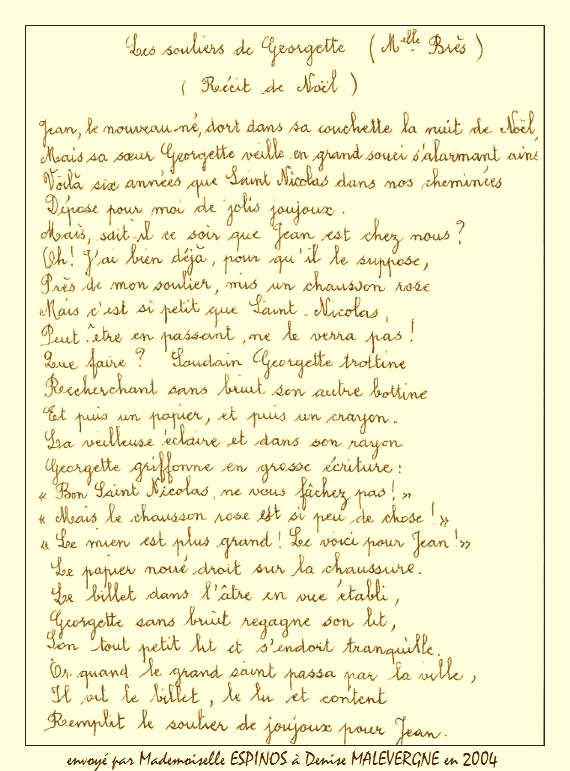 Les souliers de Georgette (Melle Brès)
( Récit de Noël )
Jean, le nouveau-né, dort dans sa couchette la nuit de Noël,
Mais sa sœur Georgette veille en grand souci s'alarmant ains
Voilà six années que Saint Nicolas dans nos cheminées
Dépose pour moi de jolis joujoux.
Mais, sait-il ce soir que Jean est chez nous ?
Oh! J'ai bien déjà, pour qu'il le suppose,
Près de mon soulier, mis un chausson rose
Mais c'est si petit que Saint-Nicolas,
Peut-être en passant, ne le verra pas !
Que faire ? Soudain Georgette trottine
Recherchant sans bruit son autre bottine
Et puis un papier, et puis un crayon.
La veilleuse éclaire et dans son rayon
Georgette griffonne en grosse écriture :
« Bon Saint Nicolas, ne vous fâchez pas ! »
« Mais le chausson rose est si peu de chose ! »
« Le mien est plus grand ! Le voici pour Jean ! »
Le papier noué droit sur la chaussure.
Le billet dans l'âtre en vue établi,
Georgette sans bruit regagne son lit,
Son tout petit lit et s'endort tranquille.
Or quand le grand saint passa par la ville,
Il vit le billet, le lu et content
Remplit le soulier de joujoux pour Jean.
envoyé par Mademoiselle ESPINOS à Denise MALEVERGNE en 2004